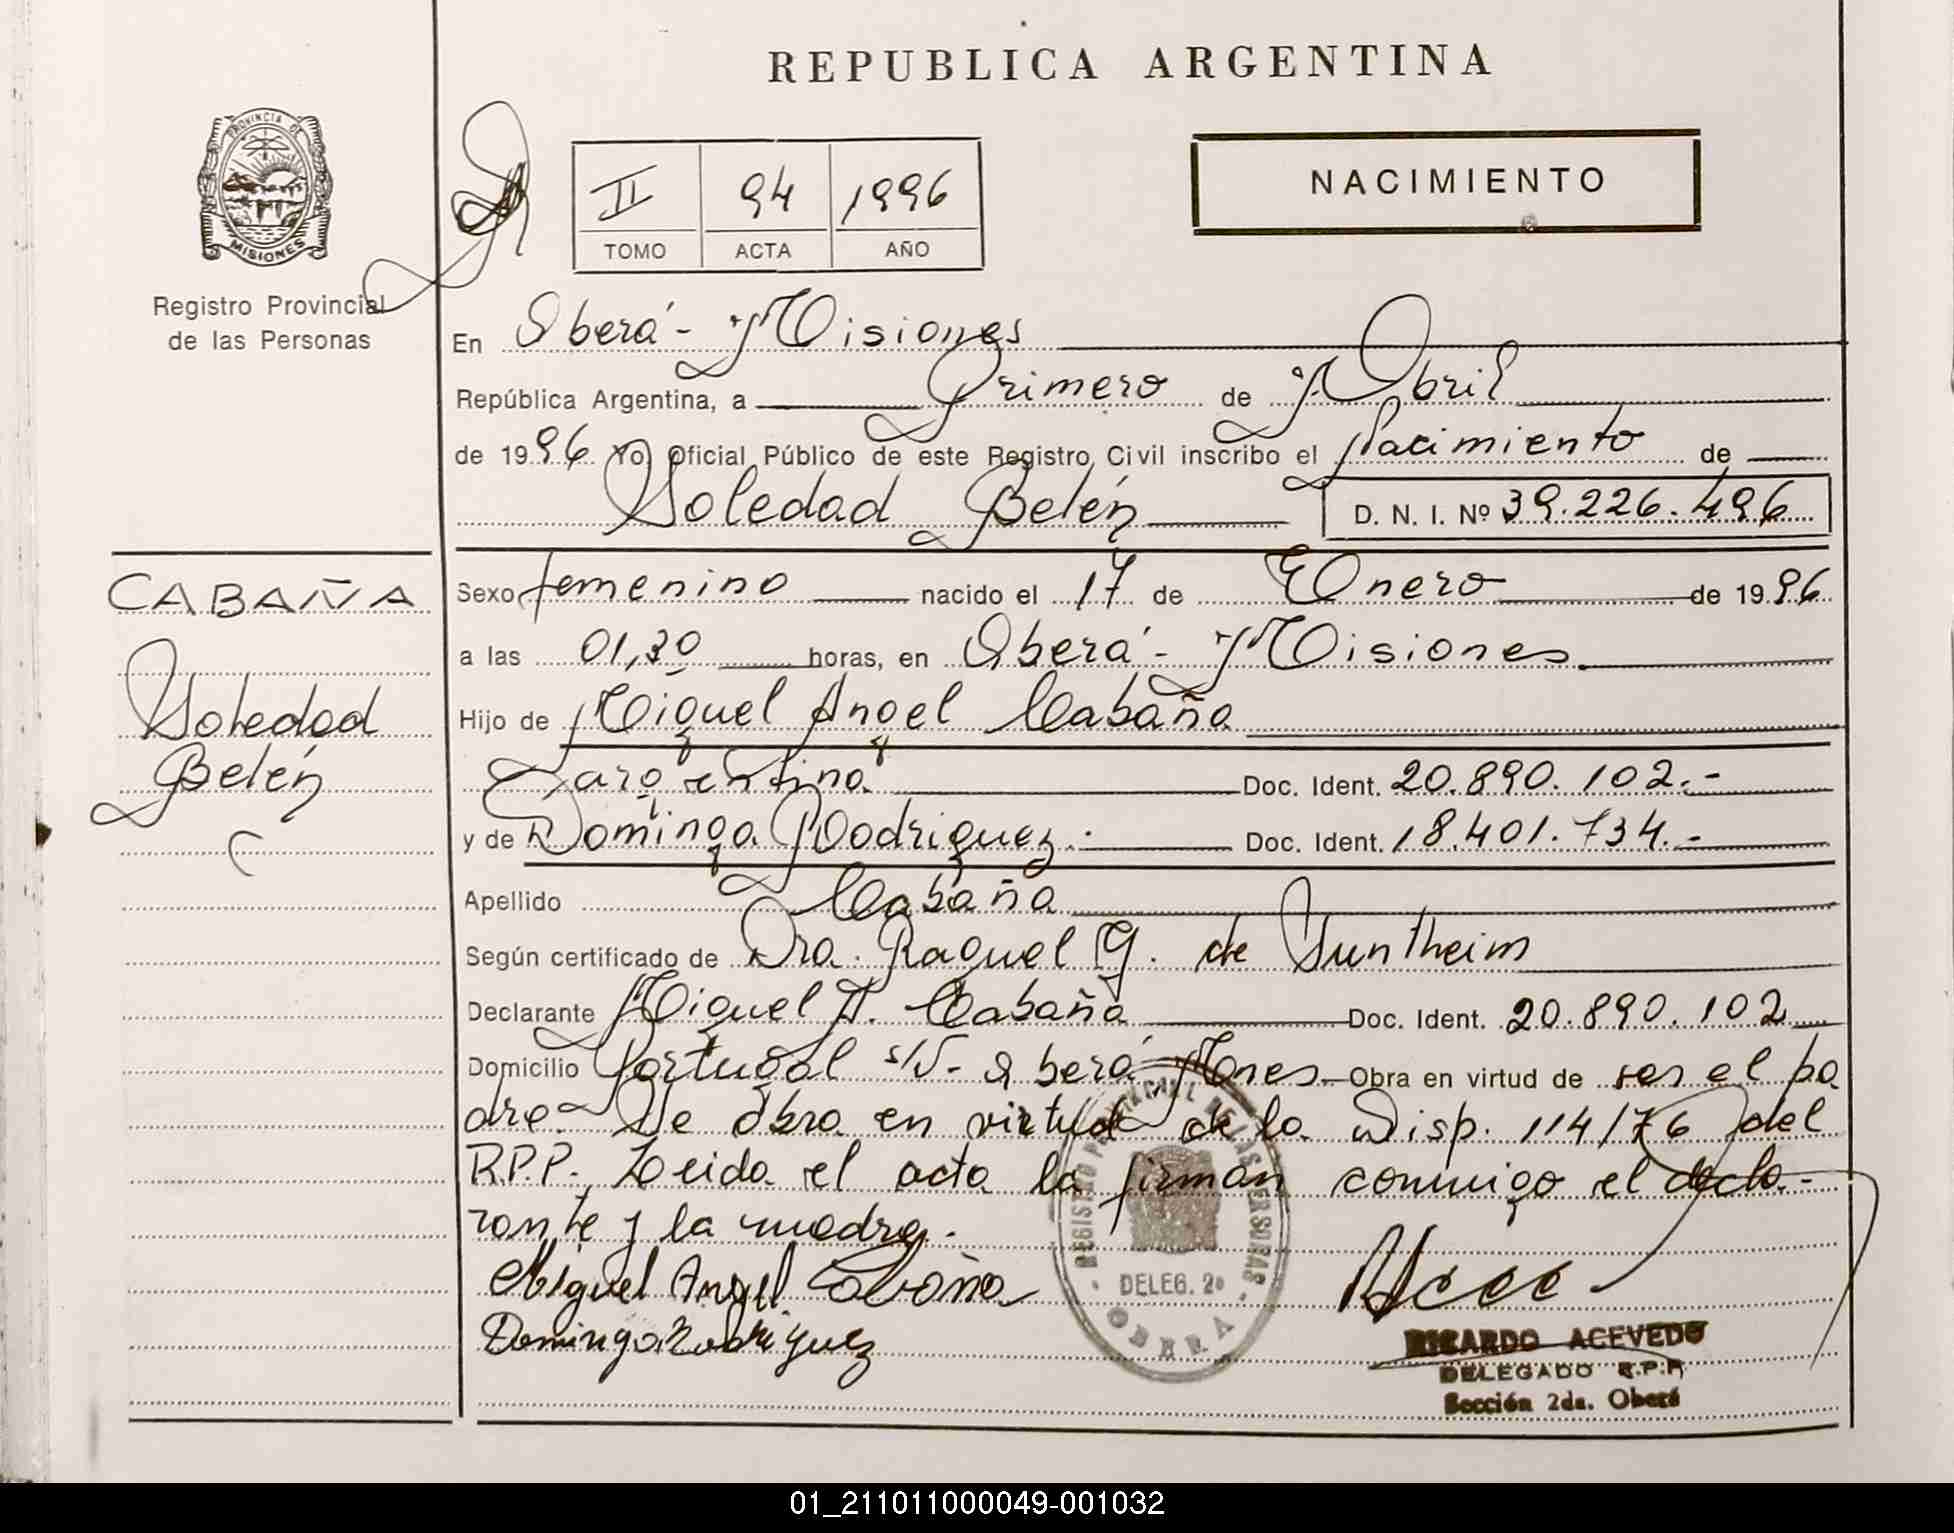 REPUBLICA ARGENTINA
PROVINCIA DE
MISIONES
Registro Provincial
de las Personas
II 94 1996
TOMO ACTA AÑO
NACIMIENTO
En Oberá - Misiones
República Argentina, a Primero de Abril
de 1996 Yo Oficial Público de este Registro Civil inscribo el Nacimiento de
Soledad Belén D. N. I. Nº 39.226.496
CABAÑA
Soledad
Belén
Sexo femenino nacido el 17 de Enero de 1996
a las 01,30 horas, en Oberá - Misiones
Hijo de Miguel Angel Cabaña
argentina Doc. Ident. 20.890.102.-
y de Dominga Rodriguez.- Doc. Ident. 18.401.734.-
Apellido Cabaña
Según certificado de Dra. Raquel G. de Suntheim
Declarante Miguel A. Cabaña Doc. Ident. 20.890.102
Domicilio Portugal s/N - Oberá Mnes Obra en virtud de ser el pa
dre. Se obra en virtud de la Disp. 114/76 del
R.P.P. Leida el acta la firman conmigo el decla-
rante y la madre.-
Miguel Angel Cabaña
Dominga Rodriguez
REGISTRO PROVINCIAL DE LAS PERSONAS
DELEG. 2a
OBERA
RICARDO ACEVEDO
DELEGADO R.P.P.
Sección 2da. Oberá
01_211011000049-001032